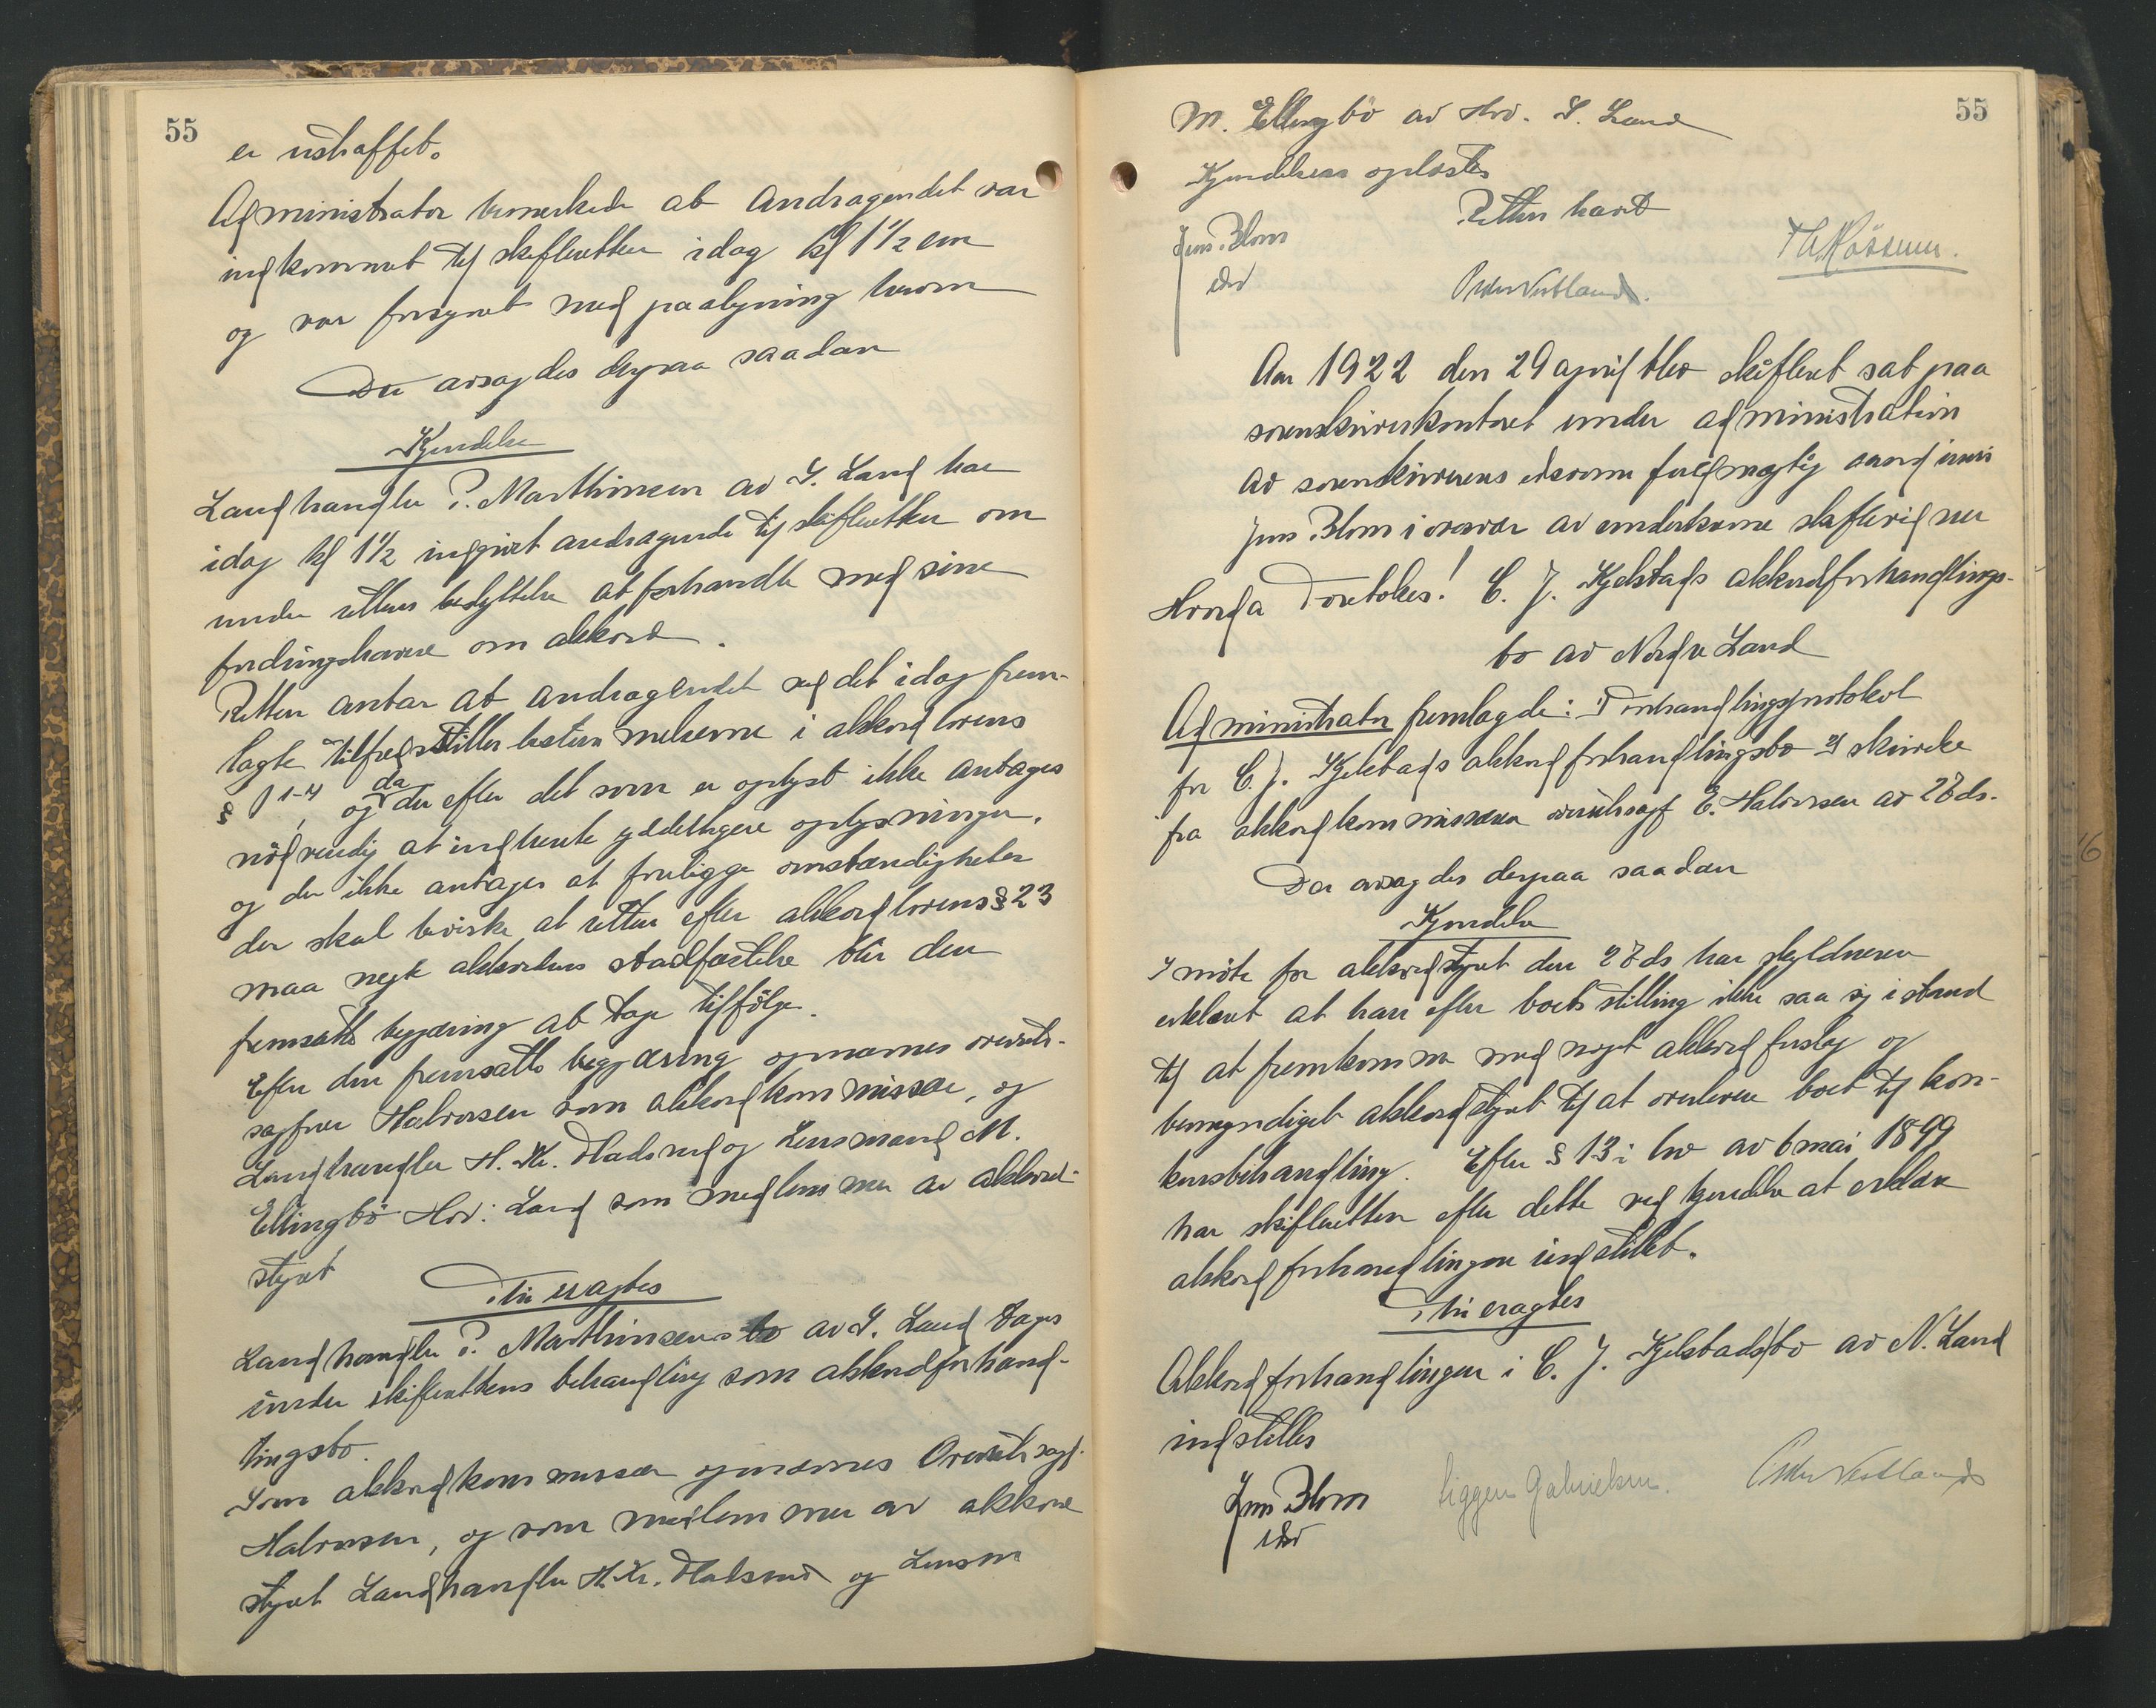 55
er ustraffet.
Administrator bemerkede at andragendet var
indkommet til skifteretten idag kl 1½ em
og var forsynet med paategning herom
Der avsagdes derpaa saadan
Kjendelse
Landhandler P. Marthinsen av S. Land har
idag kl 1½ indgivet andragende til skifteretten om
under rettens beskyttelse at forhandle med sine
fordringshavere om akkord.
Retten antar at andragendet ved det idag frem-
lagte tilfredsstiller bestemmelserne i akkordlovens
§ 1-4, og da der efter det som er oplyst ikke antages
nødvendig at indhente yderligere oplysninger,
og der ikke antages at foreligge omstændigheter
der skal bevirke at retten efter akkordlovens § 23
maa negte akkordens stadfæstelse blir den
fremsatte begjæring at tage tilfølge.
Efter den fremsatte begjæring opnævnes overrets-
sagfører Halvorsen som akkordkommissær, og
Landhandler H. Kr. Hadsrud og Lensmand M.
Ellingbö Hov: Land som medlemmer av akkord-
styret
Thi eragtes
Landhandler P. Marthinsens bo av S. Land tages
under skifterettens behandling som akkordforhand-
lingsbo.
Som akkordkommissær opnævnes Overretssagf.
Halvorsen, og som medlemmer av akkord
styret Landhandler H. Kr. Hadsrud og Lensm
55
M. Ellingbö av Hov. S. Land
Kjendelsen oplæstes
Retten hævet
Jens Blom
edsv
Peder Vestland.
Th. Røssum.
Aar 1922 den 29 april blev skifteret sat paa
sorenskriverkontoret under administration
av sorenskriverens edsvorne fuldmægtig cand juris
Jens Blom i overvær av undertegnede skiftevidner
Hvorda Foretokes: C. J. Kjelstads akkordforhandlings-
bo av Nordre Land
Administrator fremlagde: Forhandlingsprotokol
for C. J. Kjelstads akkordforhandlingsbo og skrivelse
fra akkordkommissæren overretssagf E. Halvorsen av 28 ds.
Der avsagdes derpaa saadan
Kjendelse
I möte for akkordstyret den 28 ds har skyldneren
erklæret at han efter boets stilling ikke saa sig i stand
til at fremkomme med noget akkordforslag og
bemyndiget akkordstyret til at overlevere boet til kon-
kursbehandling. Efter § 13 i lov av 6 mai 1899
har skifteretten efter dette ved kjendelse at erklære
akkordforhandlingen indstillet.
Thi eragtes
Akkordforhandlingen i C. J. Kjelstads bo av N. Land
indstilles
Jens Blom
edsv
Siggen Gabrielsen.
Peder Vestland
16